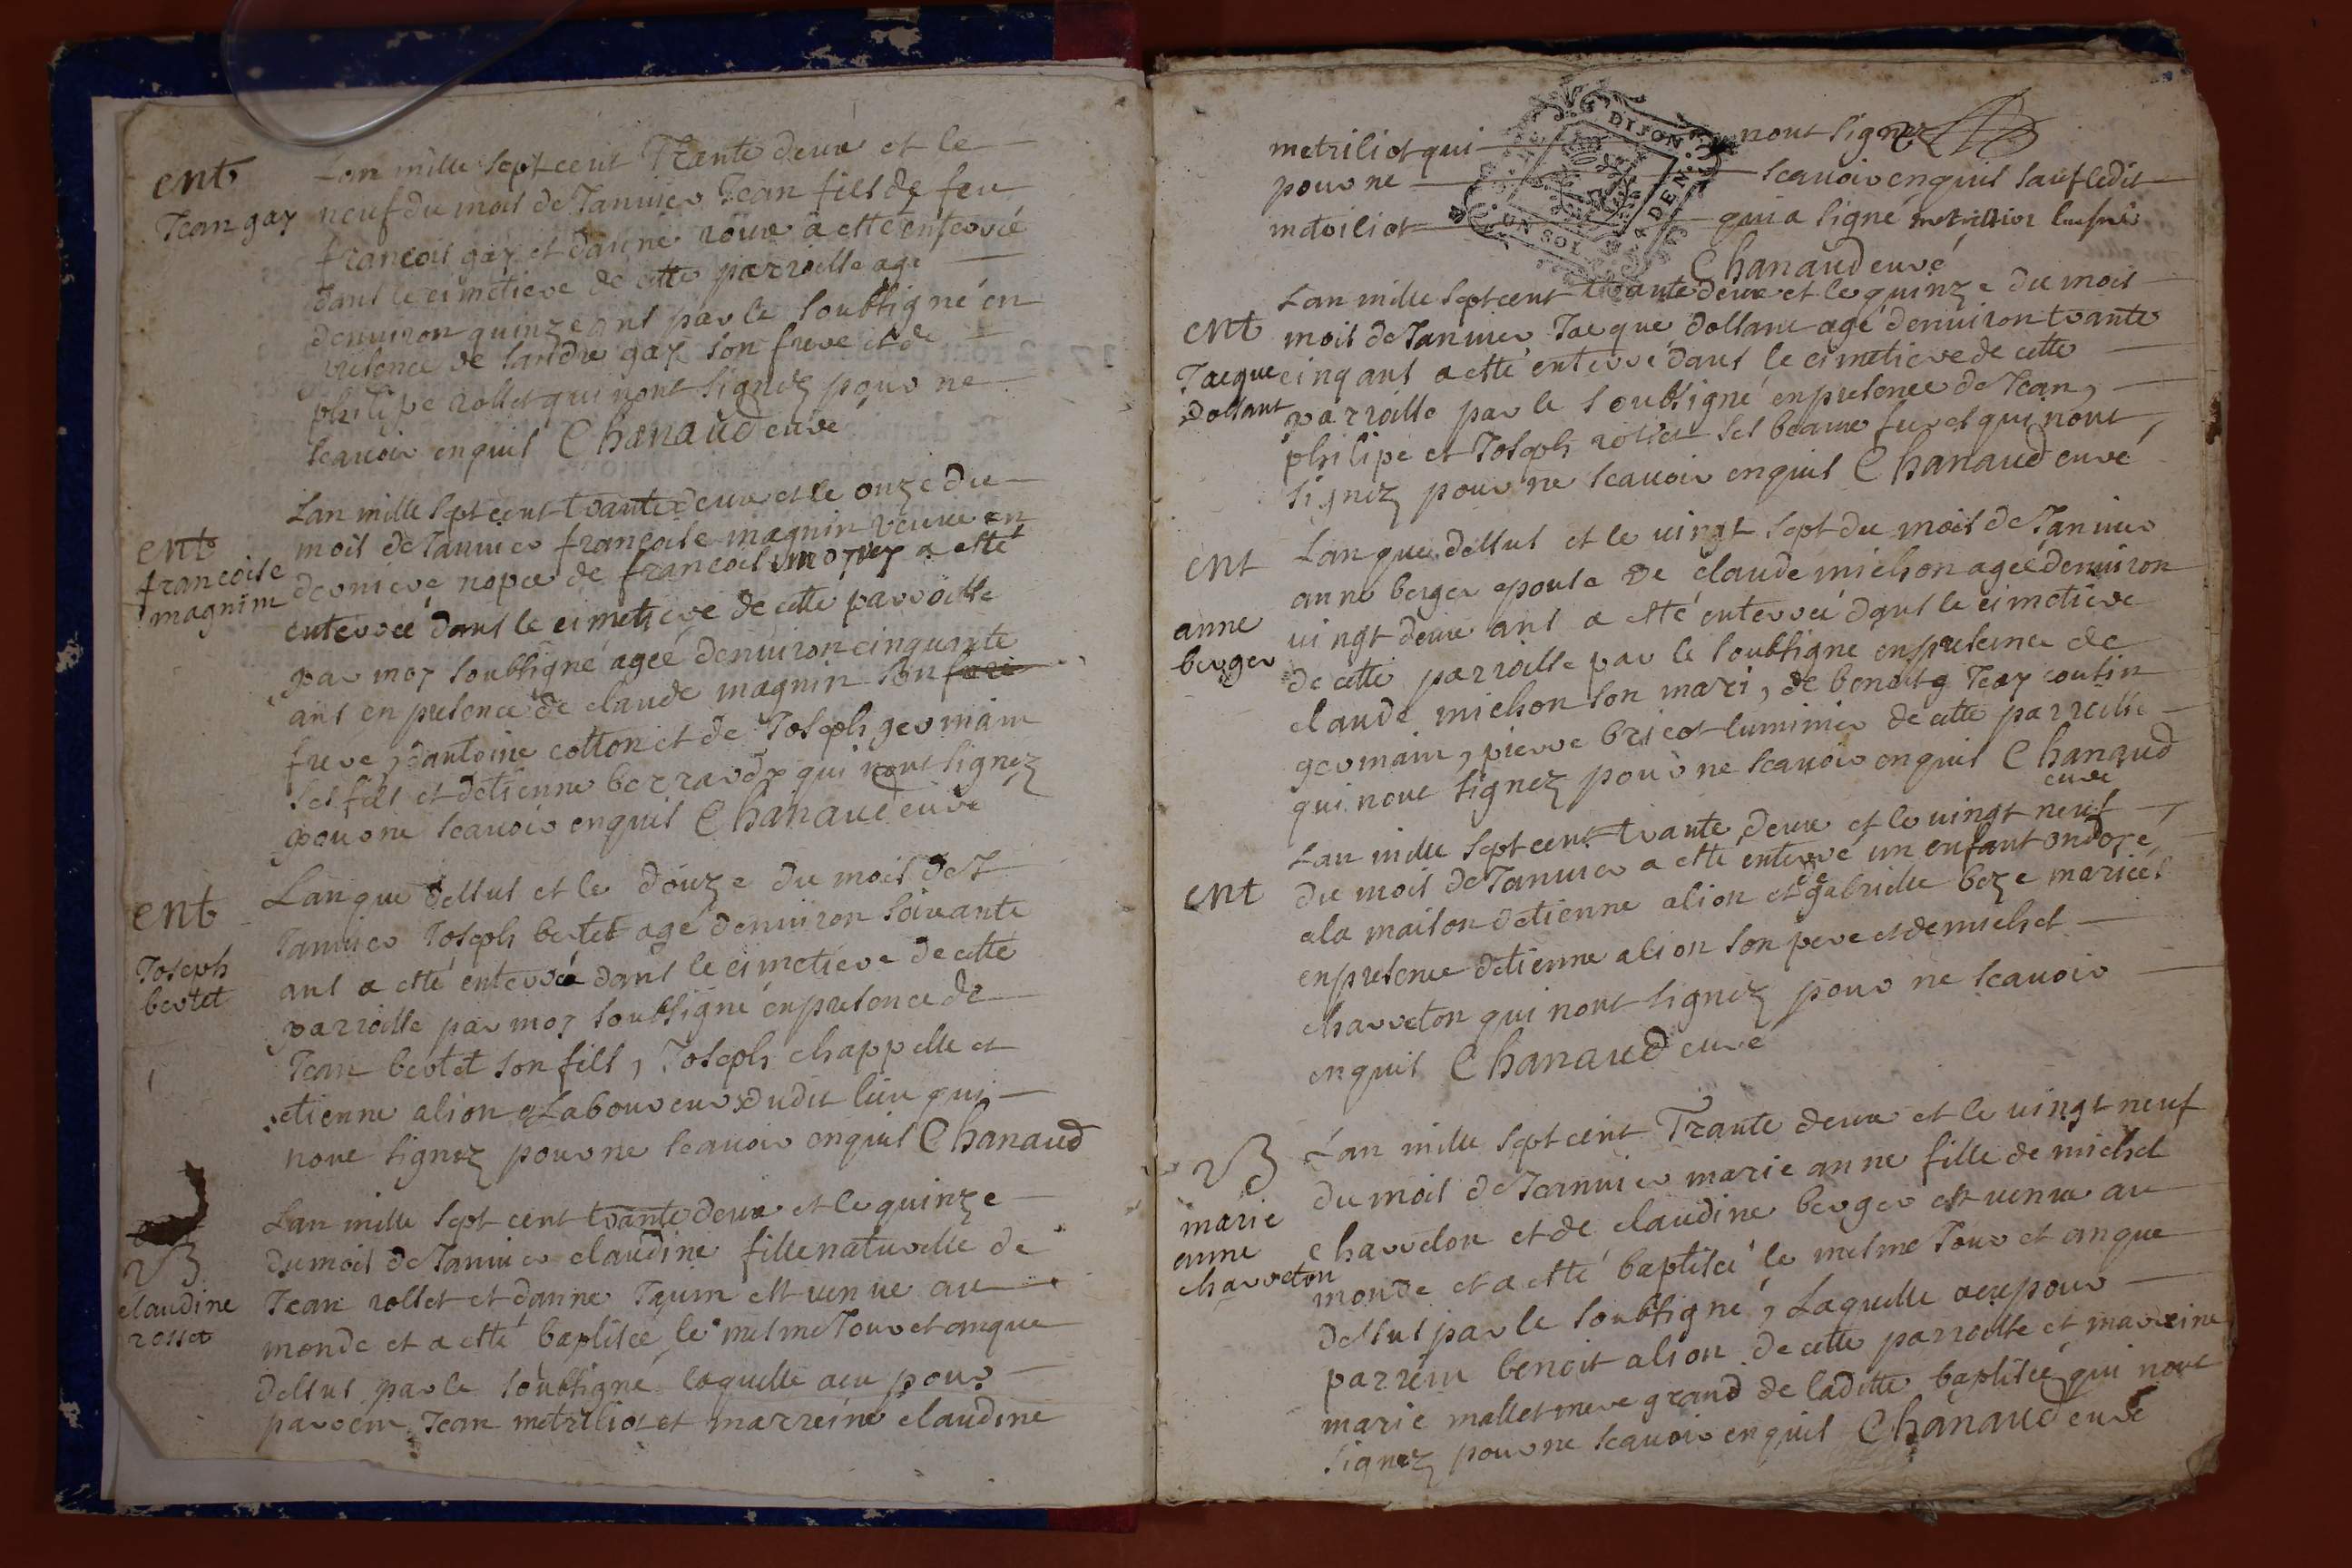 ent
Jean gay
Lan mille sept cent Trante deux et le
neuf du mois de Janvier Jean fils de feu
francois gay et danne roux a etté enterré
dans le cimetiere de cette parroisse agé
denviron quinze ans par le soubsigné en
presence de landre gay son frere et de
philipe rollet qui nont signez pour ne
scavoir enquis Chanaud curé
ent
francoise
magnin
Lan mille sept cent trante deux et le onze du
mois de Janvier francoise magnin veuve en
derniere nopce de francois a etté
enterreé dans le cimetiere de cette parroisse
par moy soubsigné ageé denviron cinquante
ans en presence de claude magnin son
frere, dantoine cotton et de Joseph germain
ses fils et detienne berrardy qui nont signez
pour ne scavoir enquis Chanaud curé
ent
Joseph
bertet
Lan que dessus et le douze du mois de J
Janvier Joseph bertet agé denviron soixante
ans a etté enterré dans le cimetiere de cette
parroisse par moy soubsigné en presence de
Jean bertet son fils, Joseph chappelle et
etienne alion Laboureurs dudit lieu qui
nont signez pour ne scavoir enquis Chanaud
B
claudine
rosset
Lan mille sept cent trante deux et le quinze
du mois de Janvier claudine fille naturelle de
Jean rollet et danne est venue au
monde et a etté baptisée le mesme Jour et an que
dessus par le soubsigné laquelle a eu pour
parrein Jean metriliot et marreine claudine
metriliot qui nont signez
pour ne scavoir enquis sauf ledit
metriliot qui a signé
DIJON
UN SOL
Chanaud curé
ent
Jacque
Dossant
Lan mille sept cent trante deux et le quinze du mois
mois de Janvier Jacque dossant agé denviron trante
cinq ans a etté enterré dans le cimetiere de cette
parroisse par le soubsigné en presence de Jean,
philipe et Joseph rollet ses beaux freres qui nont
signez pour ne scavoir enquis Chanaud curé
ent
anne
berger
Lan que dessus et le vingt sept du mois de Janvier
anne berger epouse de claude michon ageé denviron
vingt deux ans a etté enterreé dans le cimetiere
de cette parroisse par le soubsigné en presence de
claude michon son mari, de benoist Jay cousin
germain, pierre bricot luminier de cette parroisse
qui nont signez pour ne scavoir enquis Chanaud
curé
ent
Lan mille sept cent trante deux et le vingt neuf
du mois de Janvier a etté enterré un enfant ondoyé
a la maison detienne alion et de gabrielle boze mariés
en presence detienne alion son pere et de michel
charreton qui nont signez pour ne scavoir
enquis Chanaud curé
B
marie
anne
charreton
Lan mille sept cent Trante deux et le vingt neuf
du mois de Janvier marie anne fille de michel
charreton et de claudine berger est venue au
monde et a etté baptiseé le mesme Jour et an que
dessus par le soubsigné, Laquelle a eu pour
parrein benoit alion de cette parroisse et marreine
marie mallet mere grand de laditte baptiseé qui nont
signez pour ne scavoir enquis Chanaud curé